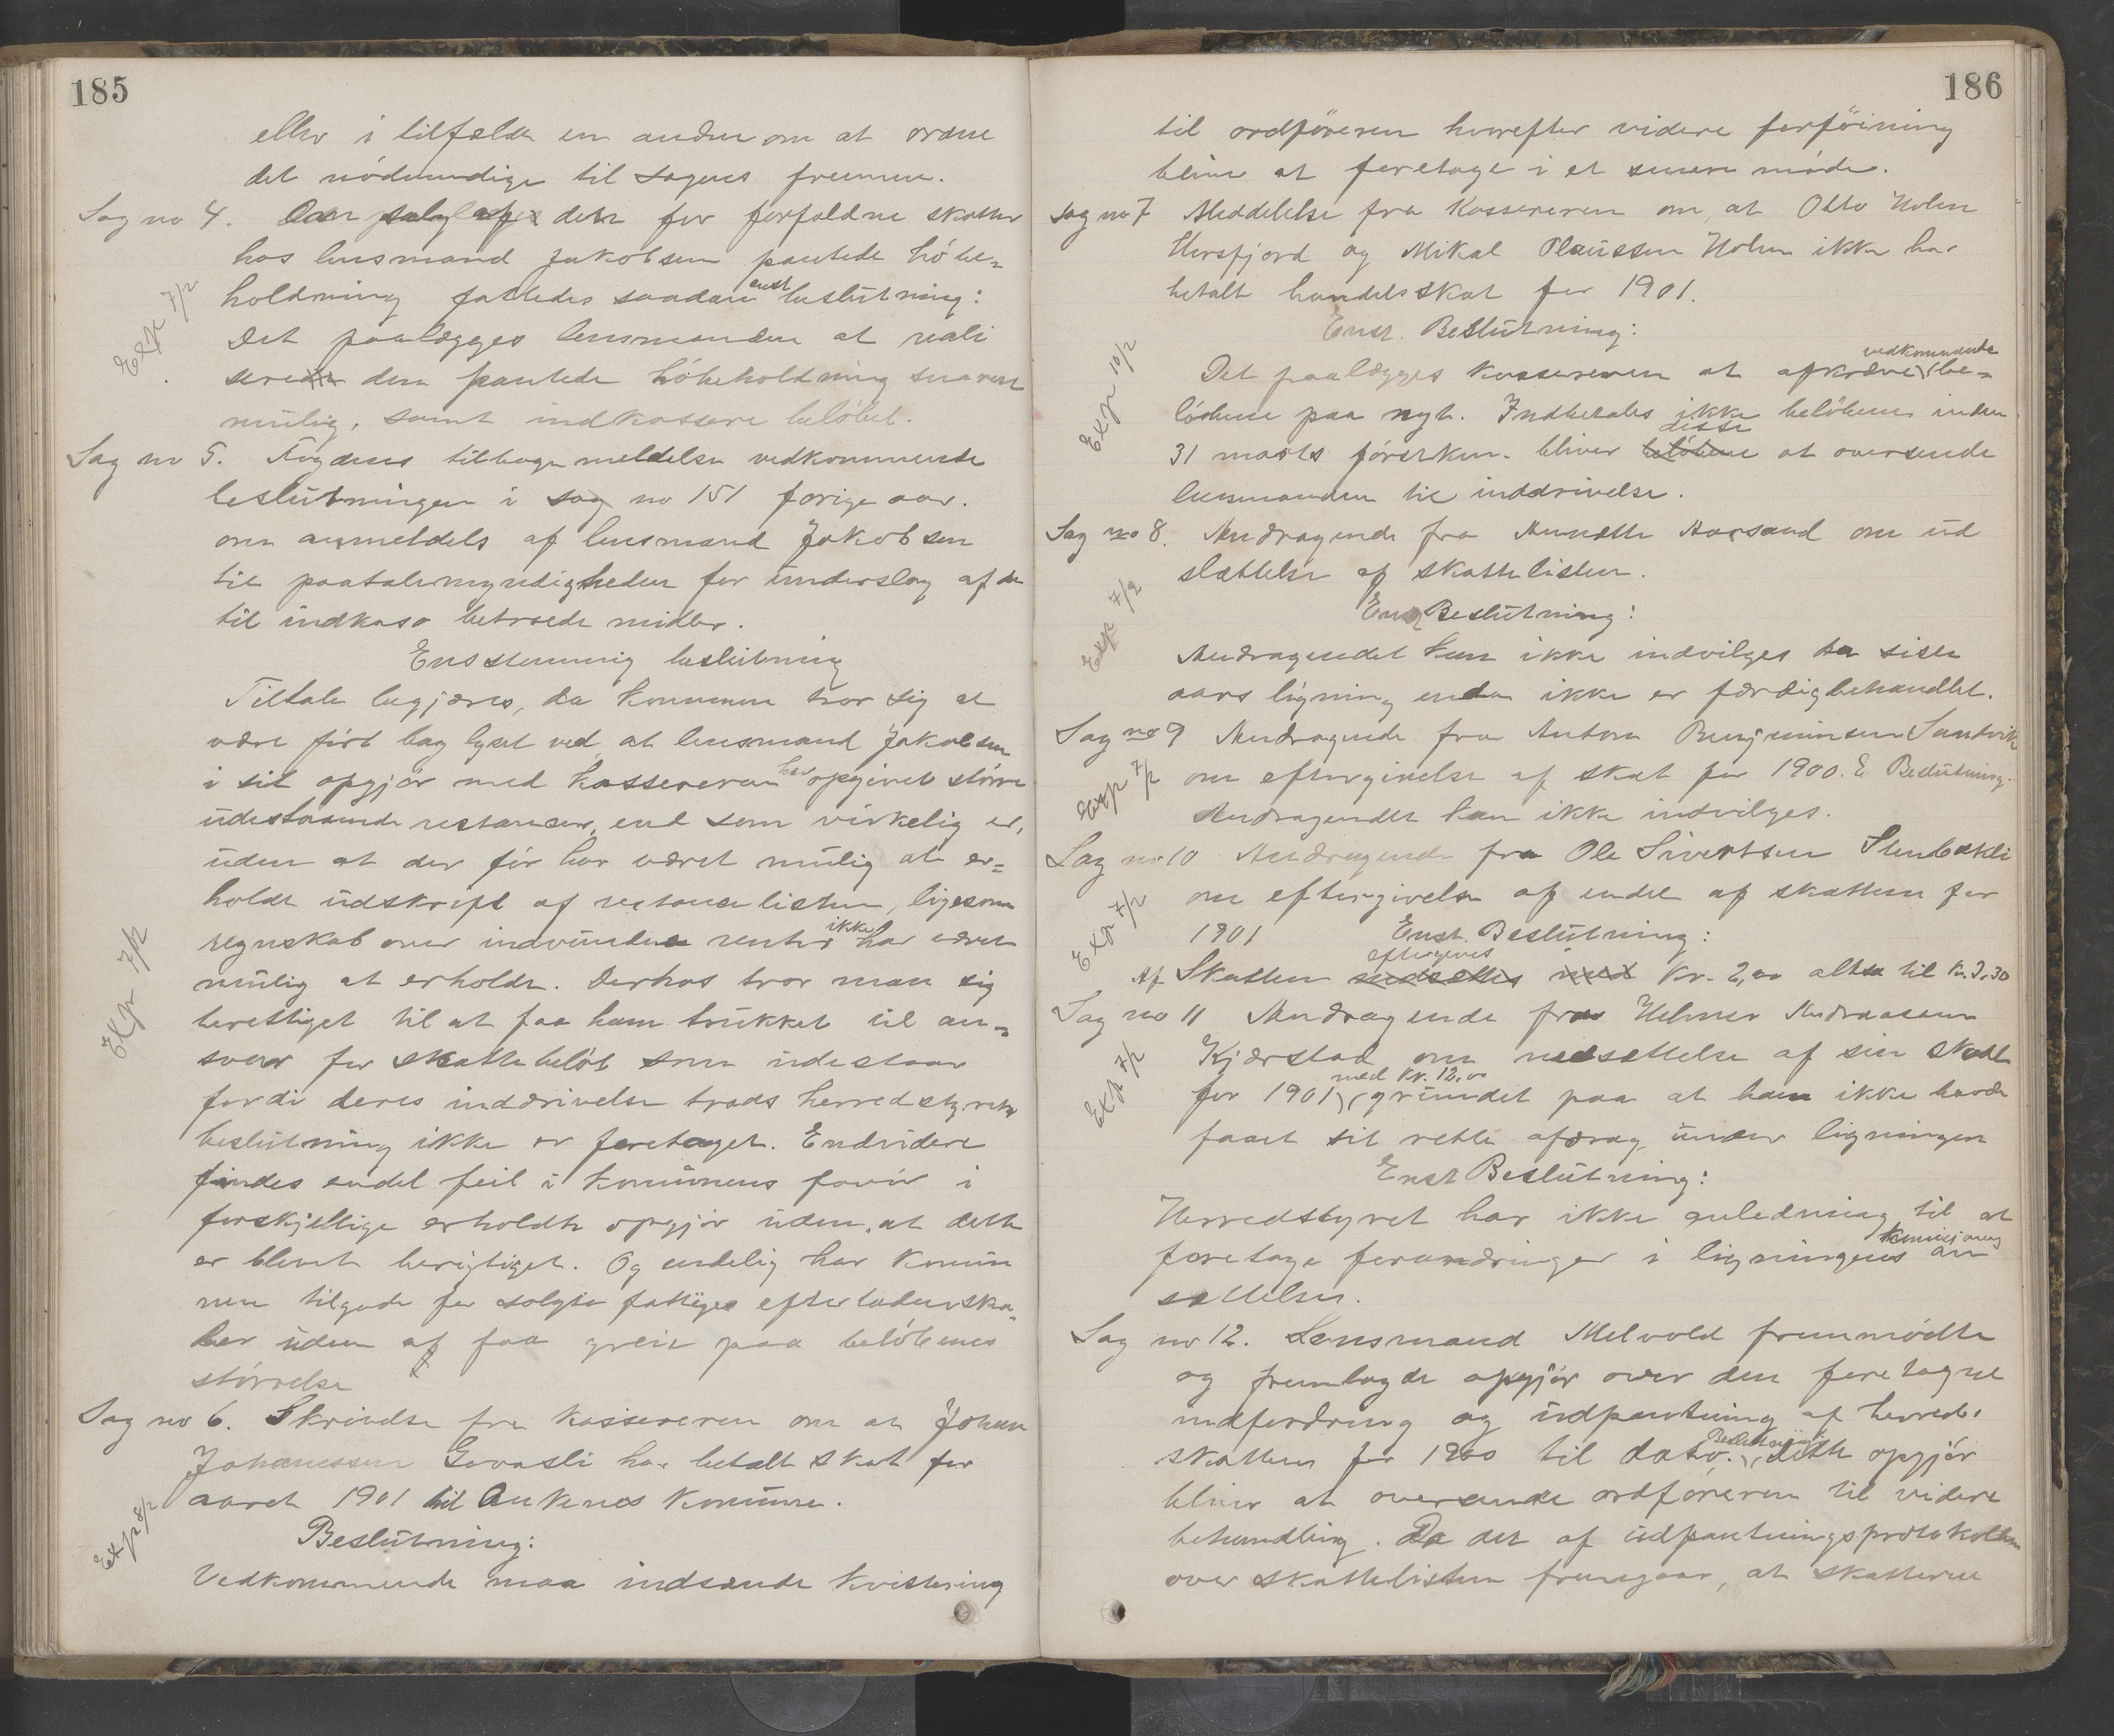 185
eller i tilfælde en anden om at ordne
det nödvendige til sagens fremme.
Sag no 4. Om salg af den for forfaldne skatter
hos lensmand Jakobsen pantede höbe=
holdning fattedes saadan enst beslutning:
Exp 7/2
Det paalægges lensmanden at reali
sere den pantede höbeholdning snarest
mulig, samt indkassere belöbet.
Sag no 5. Fogdens tilbagemeldelse vedkommende
beslutningen i sag no 151 forige aar.
om anmeldels af lensmand Jakobsen
til paatalemyndigheden for underslag af de
til indkaso betroede midler.
Ensstemmig beslutning
Tiltale begjæres, da kommunen tror sig at
være fört bag lyset ved at lensmand Jakobsen
i sit opgjör med kassereren har opgivet större
udestaaende restancer, end som virkelig er,
uden at der för har været mulig at er=
holde udskrift af restancelisten, ligesom
regnskab over indvundne renter ikke har været
mulig at erholde. Derhos tror man sig
Exp 7/2
berettiget til at faa ham trukket til an=
svar for skattebelöb som udestaar
fordi deres inddrivelse trods herredstyrets
beslutning ikke er foretaget. Endvidere
findes endel feil i kommunens favör i
forskjellige erholdte opgjör uden, at dette
er blevet berigtiget. Og endelig har kommu
nen tilgode for solgte fattiges efterladenska=
ber uden at faa greie paa belöbenes
störrelse
Sag no 6. Skrivelse fra kassereren om at Johan
Johanessen Govasli har betalt skat for
aaret 1901 til Ankenes kommune.
Exp 8/2
Beslutning:
Vedkommende maa indsende kvittering
186
til ordföreren hvorefter videre forföining
bliver at foretage i et senere möde.
Sag no 7 Meddelelse fra kassereren om, at Otto Holm
Hersfjord og Mikal Olaussen Holm ikke har
betalt handelsskat for 1901.
Enst. Beslutning:
Exp 10/2
Det paalægges kassereren at afkræve vedkommende be=
löbene paa nyt. Indbetales ikke belöbene inden
31 marts förstkm. bliver disse at oversende
lensmanden til inddrivelse.
Sag no 8. Andragende fra Annette Aarsand om ud
slættelse af skattelisten.
Exp 7/2
Enst Beslutning:
Andragendet kan ikke indvilges da siste
aars ligning enda ikke er færdigbehandlet.
Sag no 9 Andragende fra Anton Benjaminsen Sandvik
Exp 7/2
om eftergivelse af skat for 1900. E Beslutning
Andragendet kan ikke indvilges.
Sag no 10 Andragende fra Ole Sivertsen Stenbakli
Exp 7/2
om eftergivelse af endel af skatten for
1901 Enst. Beslutning:
Af Skatten eftergives kr. 2,00 altsaa til kr. 3,30
Sag no 11 Andragende fra Helmer Andreasen
Exp 7/2
Kjærstad om nedsettelse af sin skatt
for 1901 med kr. 12,00 grundet paa at han ikke havde
faaet sit rette afdrag under ligningen
Enst Beslutning:
Herredstyret har ikke anledning til at
foretage forandringer i ligningens kommisjons an
sættelser.
Sag no 12. Lensmand Melvold fremmödte
og fremlagde opgjör over den foretagne
indfordring og udpantning af herreds
skatten for 1900 til dato. Beslutning: dette opgjör
bliver at oversende ordföreren til videre
behandling. Da det af udpantningsprotokollen
over skattelisten fremgaar, at skatterne